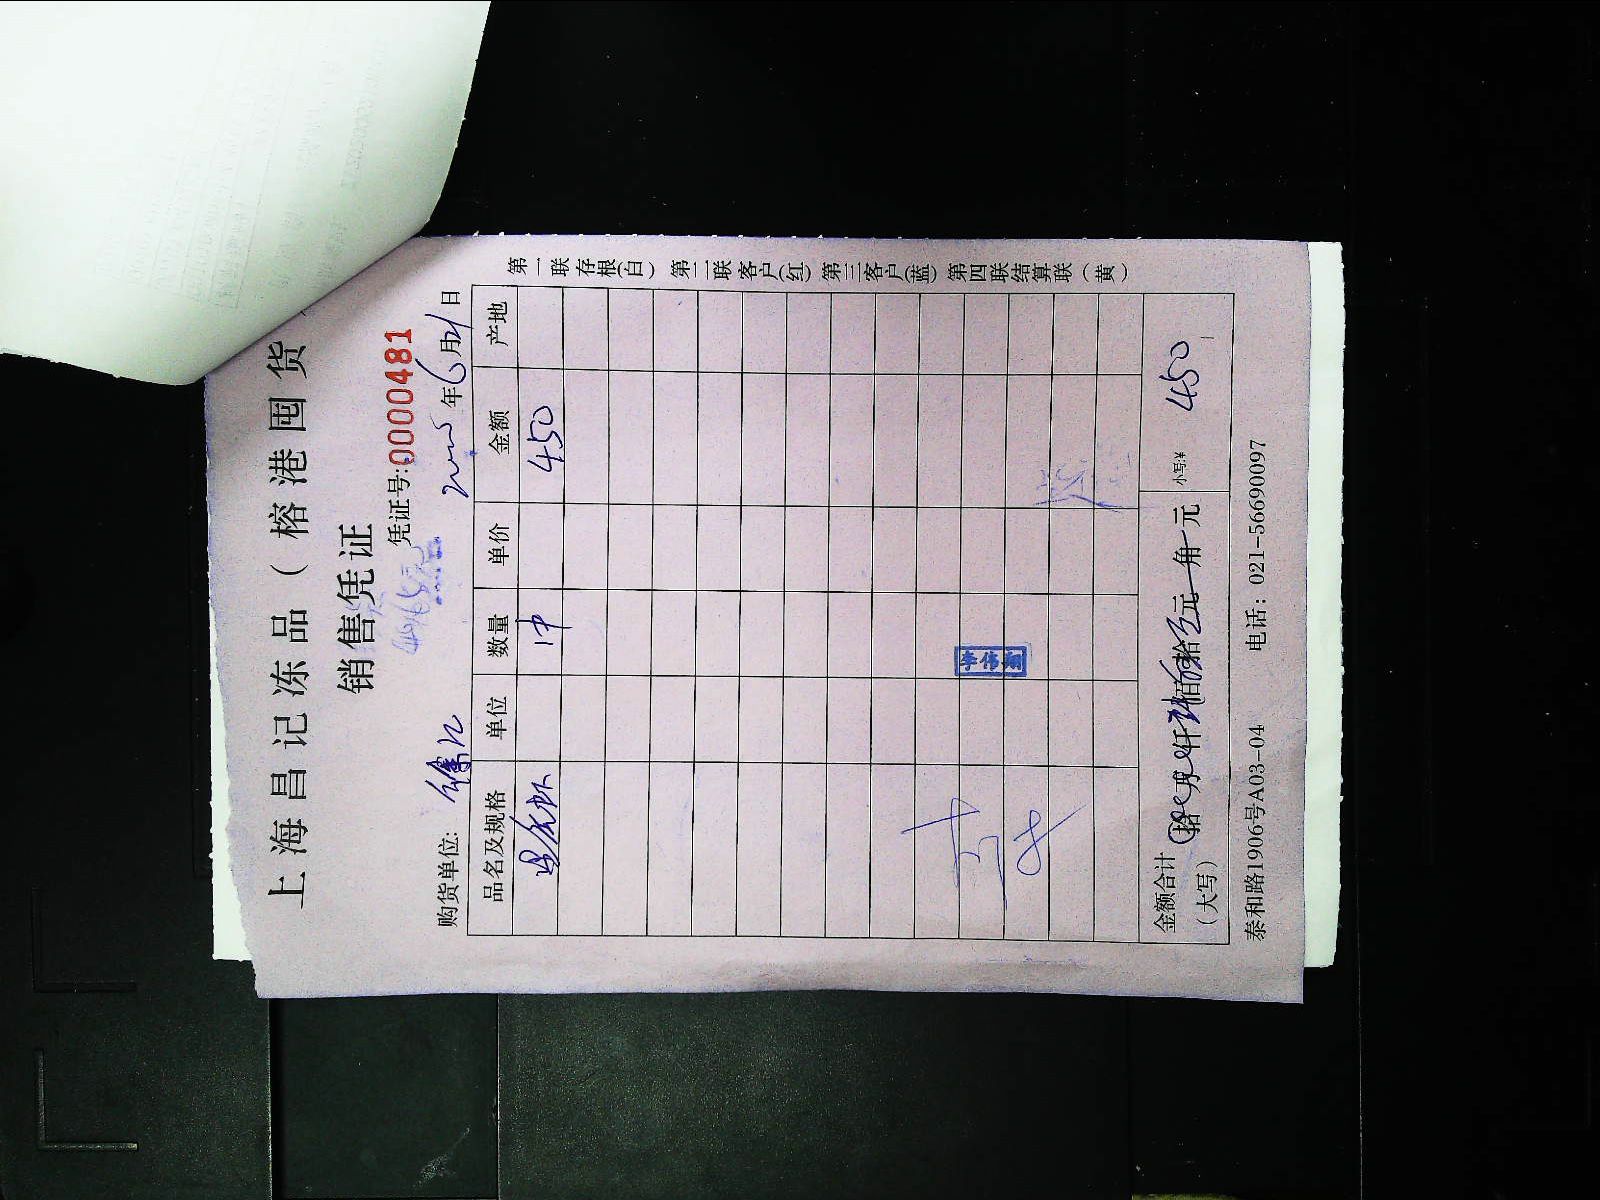 上海昌记冻品（榕港囤货
销售凭证
凭证号:0000481
购货单位: 徐汇 年6月21日
品名及规格 单位 数量 单价 金额 产地
1件 450
李伟翔
金额合计（大写） 拾 万 仟 佰 拾 元 角 元 小写:¥ 450
泰和路1906号A03-04 电话：021-56690097
第一联存根(白) 第二联客户(红) 第三客户(蓝) 第四联结算联(黄)